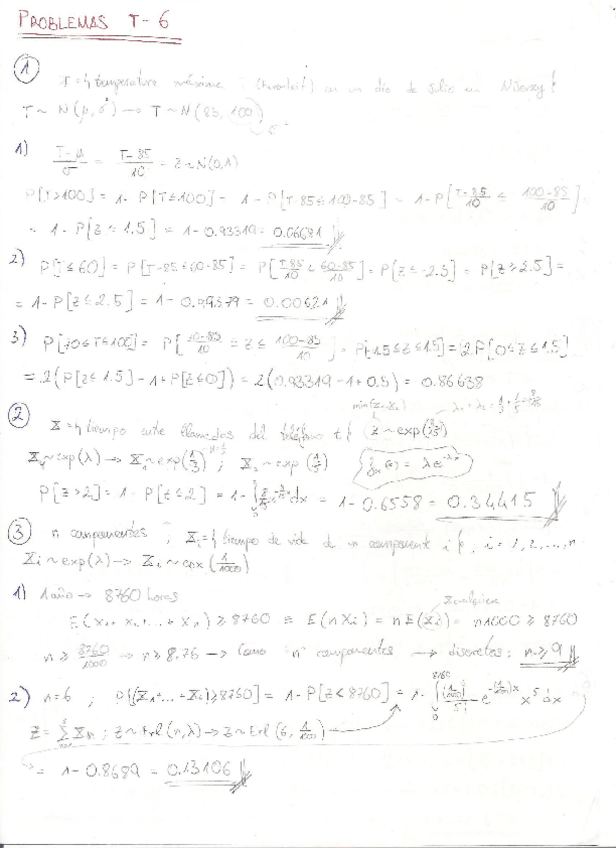 PROBLEMAS T-6
① T = { temperatura máxima (Farenheit) en un día de Julio en NJersey }
T ~ N(μ, σ²) → T ~ N(85, 100)
1) (T-μ)/σ = (T-85)/10 = Z ~ N(0,1)
P[T>100] = 1 - P[T≤100] = 1 - P[T-85≤100-85] = 1 - P[(T-85)/10 ≤ (100-85)/10] =
= 1 - P[Z ≤ 1.5] = 1 - 0.93319 = 0.06681
2) P[T≤60] = P[T-85≤60-85] = P[(T-85)/10 ≤ (60-85)/10] = P[Z≤-2.5] = P[Z≥2.5] =
= 1 - P[Z≤2.5] = 1 - 0.99379 = 0.00621
3) P[70≤T≤100] = P[(70-85)/10 ≤ Z ≤ (100-85)/10] = P[-1.5≤Z≤1.5] = 2P[0≤Z≤1.5]
= 2(P[Z≤1.5] - 1 + P[Z≤0]) = 2(0.93319 - 1 + 0.5) = 0.86638
② X = { tiempo entre llamadas del teléfono } Z ~ exp(8/15)
λ₁ + λ₂ = 1/3 + 1/5 = 8/15
X₁ ~ exp(λ) → X₁ ~ exp(1/3) ; X₂ ~ exp(1/5)
P[Z>2] = 1 - P[Z≤2] = 1 - ∫ dx = 1 - 0.6558 = 0.34415
③ n componentes ; Xi = { tiempo de vida de un componente i }, i = 1, 2, ..., n
Xi ~ exp(λ) → Xi ~ exp(1/1000)
1) 1 año → 8760 horas
X cualquiera
E(X₁ + X₂ + ... + Xn) ≥ 8760 ≡ E(nXi) = nE(Xi) = n1000 ≥ 8760
n ≥ 8760/1000 → n ≥ 8.76 → Como "n" componentes → discretos: n ≥ 9
2) n=6 ; P[(X₁+...+X₆) ≥ 8760] = 1 - P[Z<8760] = 1 - ∫ e^(-(1/1000)x) x⁵ dx
Z = ΣXn ; Z ~ Erl(n,λ) → Z ~ Erl(6, 1/1000)
= 1 - 0.8689 = 0.13106